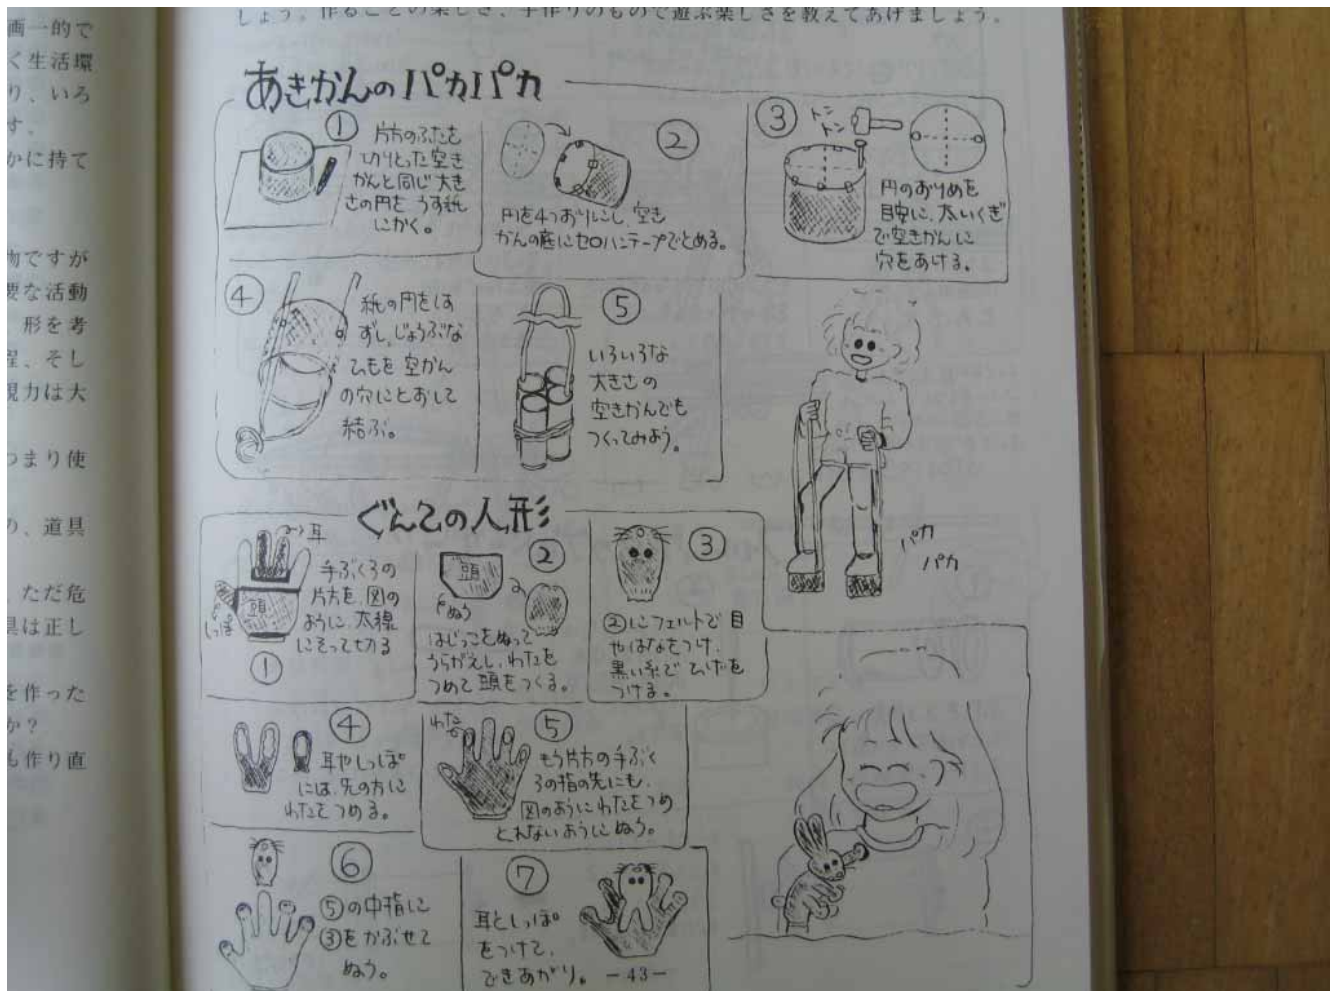 画一的で
く生活環
り、いろ
す。
かに持て
物ですが
要な活動
形を考
程、そし
現力は大
つまり使
の、道具
ただ危
具は正し
を作った
か?
も作り直
しょう。作ることの楽しさ、手作りのもので遊ぶ楽しさを教えてあげましょう。
あきかんのパカパカ
①
片方のふたを
切りとった空き
かんと同じ大き
さの円を うす紙
にかく。
②
円を4つおりにし、空き
かんの底にセロハンテープでとめる。
③
トン
トン
円のおりめを
目安に、太いくぎ
で空きかんに
穴をあける。
④
紙の円をは
ずし、じょうぶな
ひもを 空かん
の穴にとおして
結ぶ。
⑤
いろいろな
大きさの
空きかんでも
つくってみよう。
パカ
パカ
ぐんての人形
耳
手ぶくろの
片方を、図の
ように、太線
にそって切る
頭
しっぽ
①
②
頭
ぬう
はじっこをぬって
うらがえし、わたを
つめて 頭をつくる。
③
②にフェルトで 目
やはなをつけ、
黒い糸で ひげを
つける。
④
耳やしっぽ
には、先の方に
わたをつめる。
わた
⑤
もう片方の手ぶく
ろの指の先にも、
図のようにわたをつめ
とれないようにぬう。
⑥
⑤の中指に
③をかぶせて
ぬう。
⑦
耳としっぽ
をつけて、
できあがり。
－43－